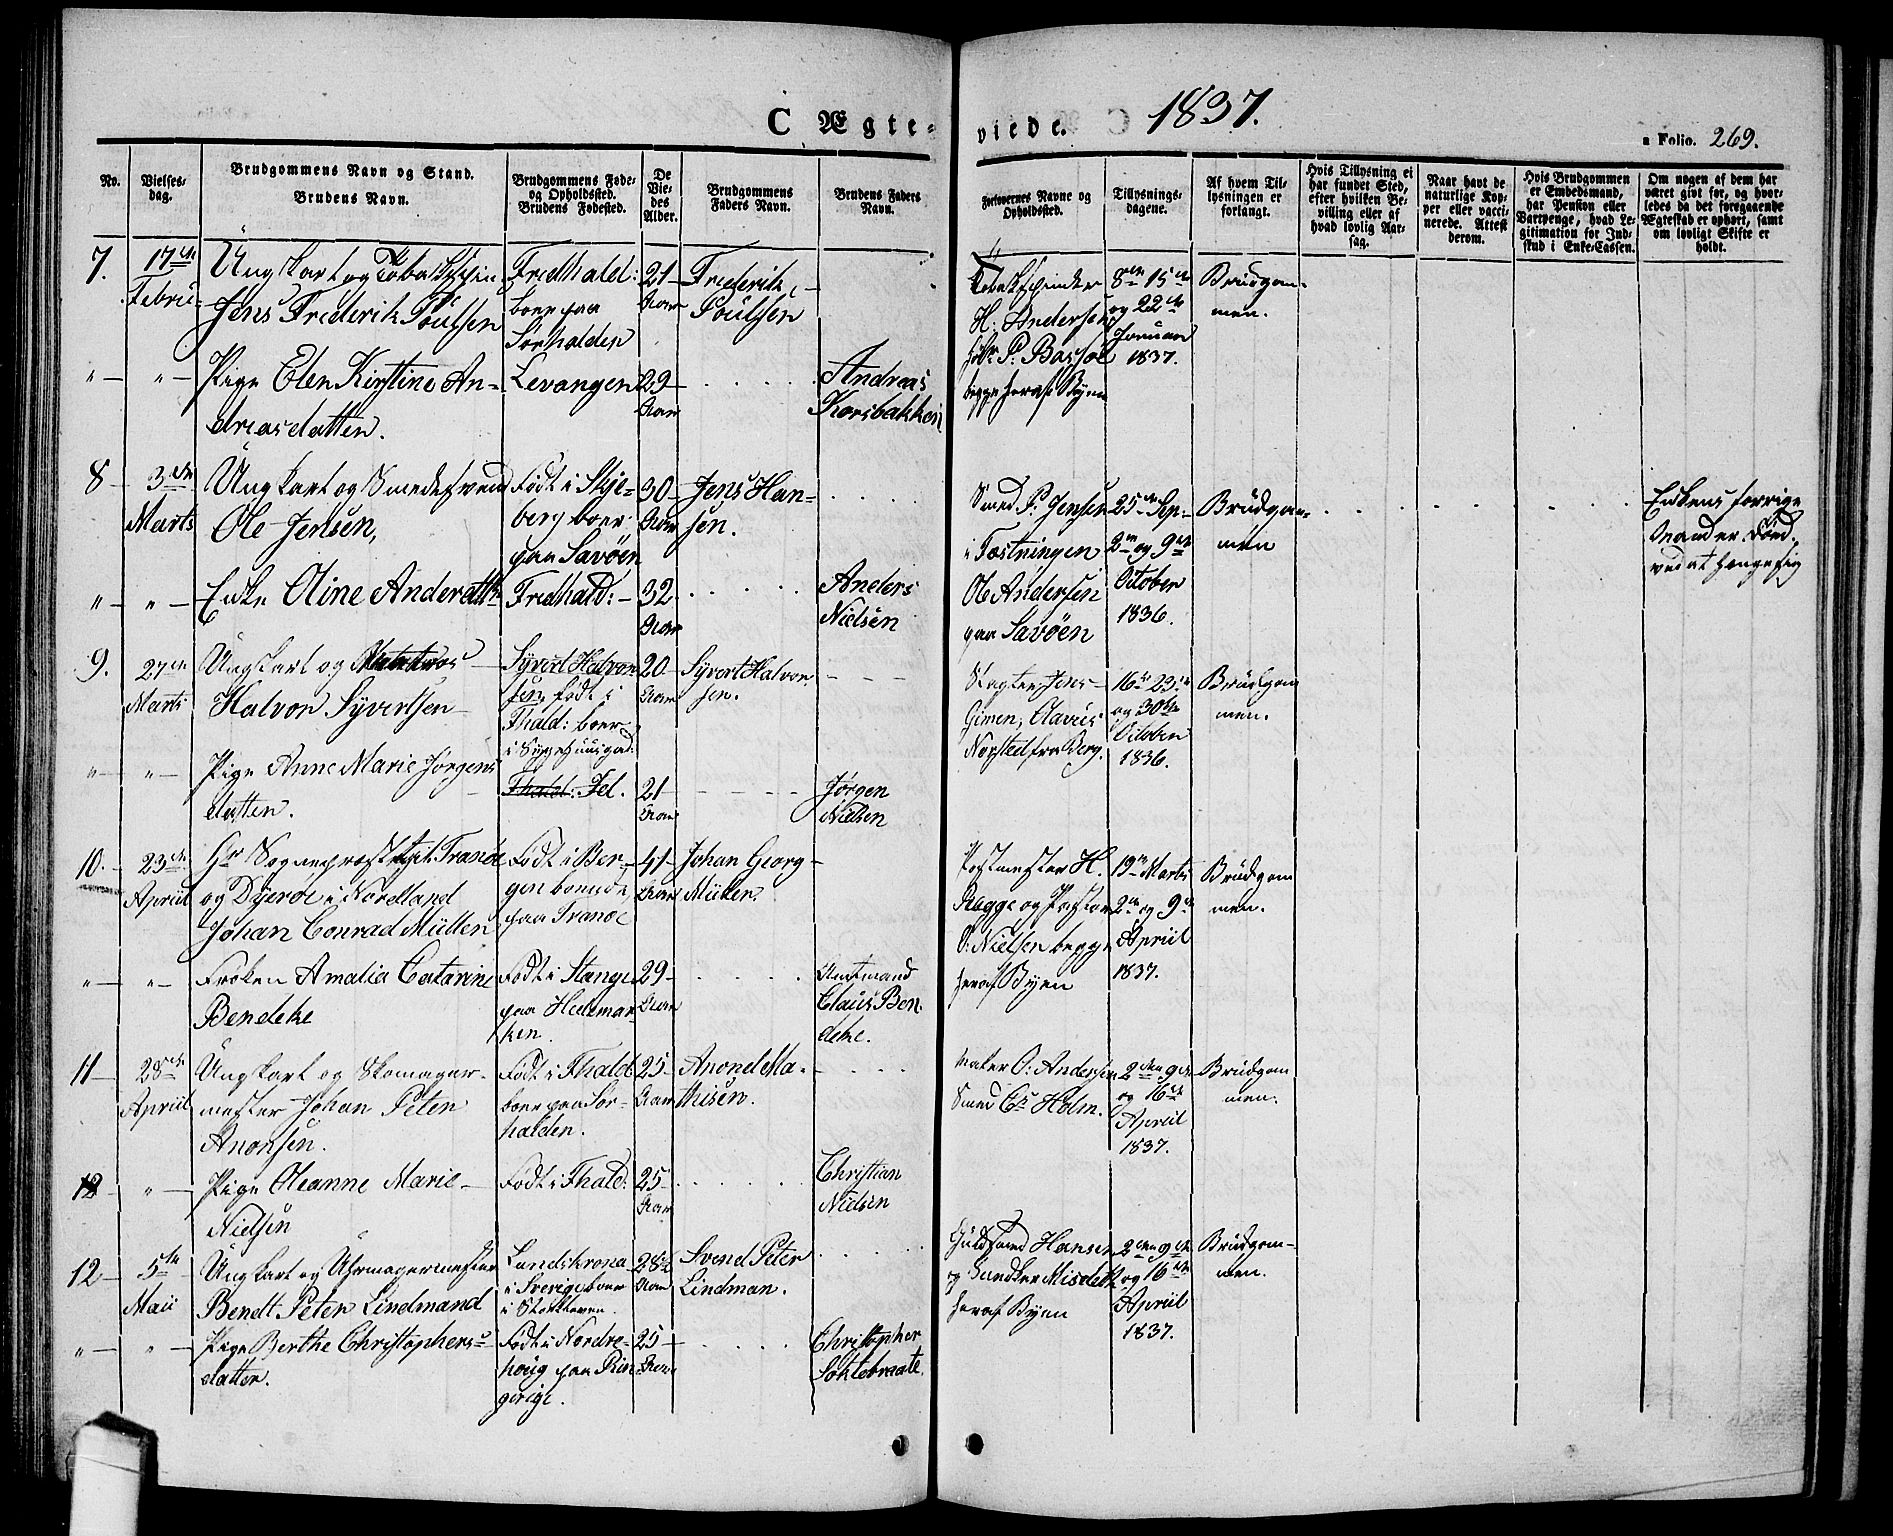 C Ægte-
viede.
1837.
a Folio. 269.
No.
Vielses-
dag.
Brudgommens Navn og Stand.
Brudens Navn.
Brudgommens Føde-
og Opholdssted.
Brudens Fødested.
De
Vie-
des
Alder.
Brudgommens
Faders Navn.
Brudens Faders
Navn.
Forlovernes Navne og
Opholdssted.
Tillysnings-
dagene.
Af hvem Til-
lysningen er
forlangt.
Hvis Tillysning ei
har fundet Sted,
efter hvilken Be-
villing eller af
hvad lovlig Aar-
sag.
Naar havt de
naturlige Kop-
per eller vacci-
nerede. Attest
derom.
Hvis Brudgommen
er Embedsmand,
har Pension eller
Vartpenge, hvad Le-
gitimation for Ind-
skud i Enke-Cassen.
Om nogen af dem har
været givt før, og hvor-
ledes da det foregaaende
Ægteskab er ophørt, samt
om lovligt Skifte er
holdt.
7.
17de
Febru-
Ungkarl og Tobakspin
Jens Frederik Poulsen
Fredhald:
boer paa
Sørhalden
21
Aar
Frederik
Poulsen
Tobakspinder
H. Andersen
P. Bassøe
begge heraf Byen
8de 15de
og 22de
Januar
1837.
Brudgom-
men.
" " Pige Elen Kirstine An-
dreasdatter.
Levangen
29
Aar
Andreas
Korsbakken
8
3die
Marts
Ungkarl og Smedesvend
Ole Jensen,
Født i Skje-
berg boer
paa Savøen
30
Aar
Jens Han-
sen.
Smed P. Jensen
i Fæstningen
Ole Andersen
paa Savøen
25de Sep-
2den og 9de
October
1836.
Brudgom-
men
Enkens forrige
Mand er død
ved at hænge sig
" " Enke Oline Andersdtr
Fredhald:
32
Aar
Anders
Nielsen
9.
27de
Marts
Ungkarl og Matros
Halvor Syvertsen
Syvert Halvor
sen født i
Fhald: boer
i Sygehuusgad:
20
Aar
Syvert Halvor
sen.
Slagter Jens
Gimen, Olavus
Norsted fra Berg.
16de 23de
og 30te
October
1836.
Brudgom
men.
" " Pige Anne Marie Jørgens
datter.
Fhald: Id.
21
Aar
Jørgen
Nielsen
10.
23de
Apriil
Hr Sognepræst til Tranøe
og Dyerøe i Nordland
Johan Conrad Müller
Født i Ber-
gen boende
paa Tranøe
41
Aar
Johan Georg
Müller.
Postmester H.
Rogge og Pastor
O: Nielsen begge
heraf Byen
19de Marts
2den og 9de
Apriil
1837.
Brudgom
men.
" " Frøken Amalia Catarine
Bendeke
Født i Stange
paa Hedemar-
ken.
29
Aar
Amtmand
Claus Ben
deke.
11
28de
Apriil
Ungkarl og Skomager-
mester Johan Peter
Anonsen.
Født i Fhald:
boer paa Sør-
halden.
25
Aar
Anond Ma-
thisen.
Maler O: Andersen
Smed Chr Holm.
2den 9de
og 16de
Apriil
1837.
Brudgom
men.
12 " Pige Oleanne Marie
Nielsen
Født i Fhald:
25
Aar
Christian
Nielsen
12
5te
Maii
Ungkarl og Uhrmagermester
Bendt Peter Lindmand
Landskrona
i Sverige boer
i
28½
Aar
Svend Peter
Lindman.
Guldsmed Hansen
og
heraf Byen
2den 9de
og 16de
Apriil
1837.
Brudgom-
men.
" " Pige Berthe Christophers-
datter.
Født i Nordre-
houg paa Rin
gerige.
25
Aar
Christopher
Soktebraate.